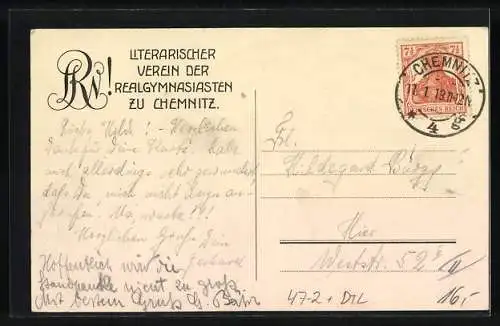 LRV!
LITERARISCHER
VEREIN DER
REALGYMNASIASTEN
ZU CHEMNITZ.
7½ 7½
CHEMNITZ
DEUTSCHES REICH
* 4
Liebe Hilde! - Herzlichen
Dank für Deine Karte. Habe
mich allerdings sehr gewundert
daß Du mich nicht
Na, warte!!!
Herzlichen Gruß Dein
Gerhard
Hoffentlich wird die
Standpauke nicht zu groß.
Mit bestem Gruß G.
Frl.
Hildegard
Hier
Weststr. 52 II
47-2 + DTL
16,-